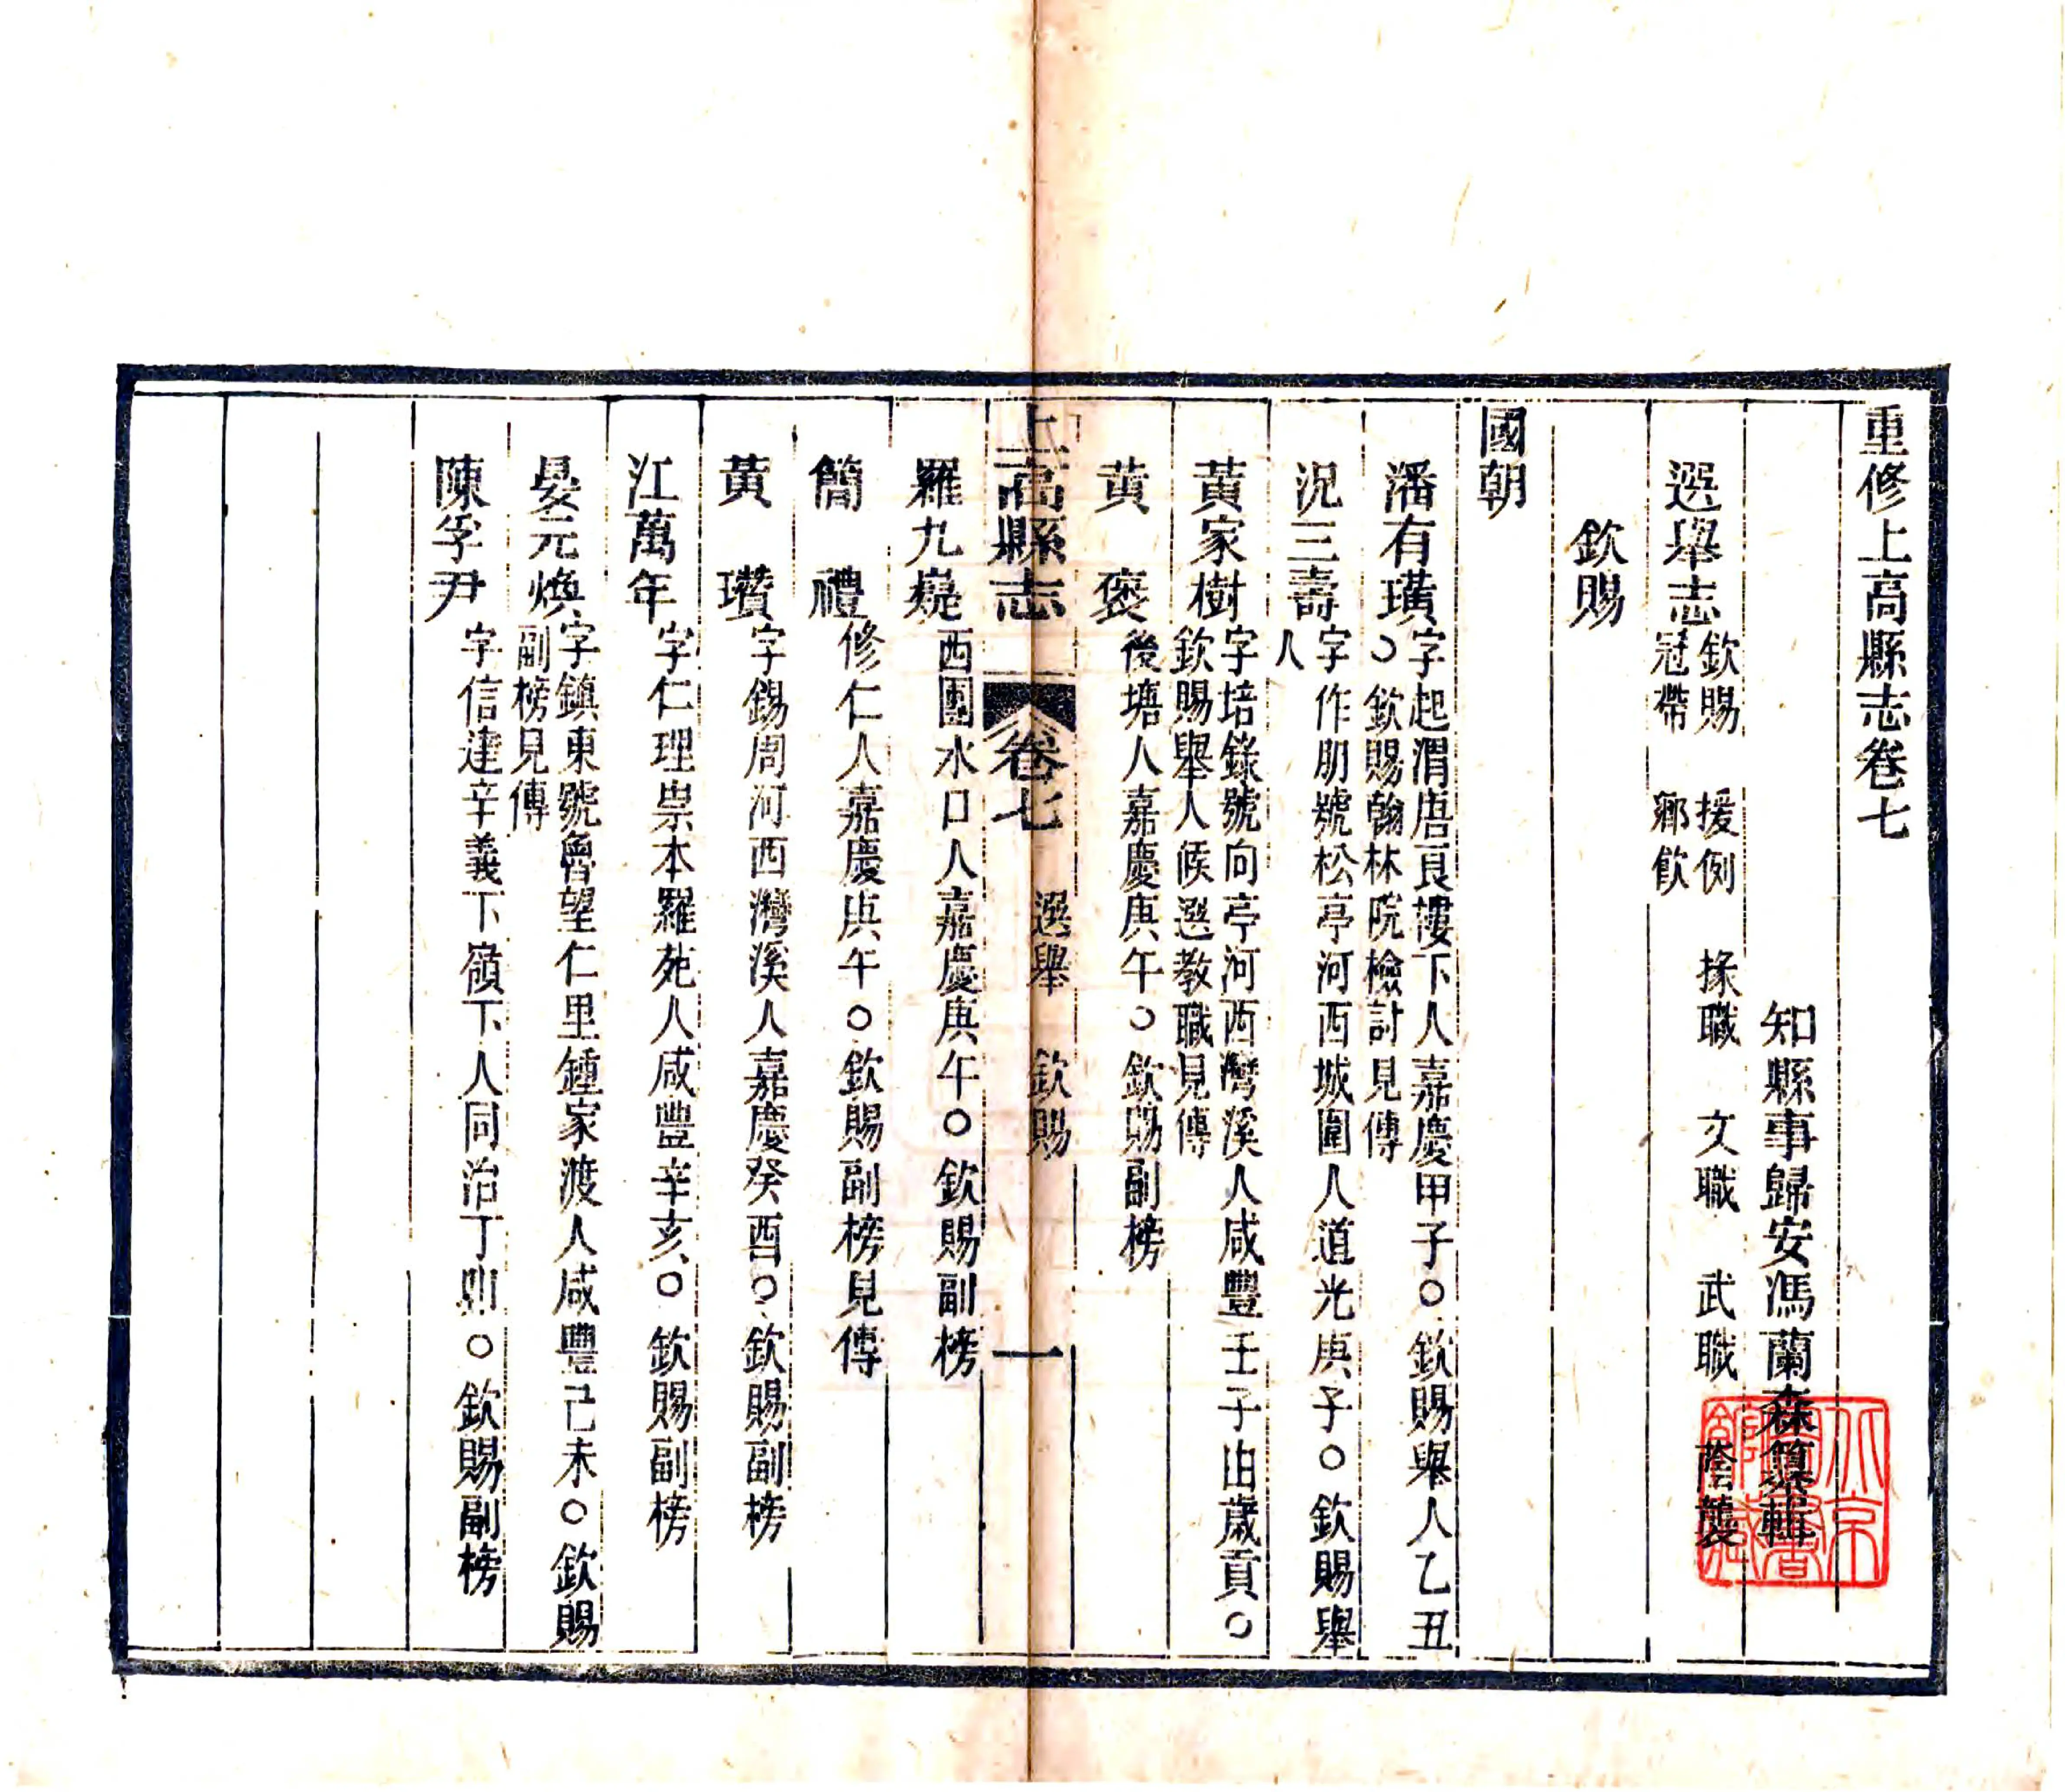 重修上高縣志卷七
知縣事歸安馮蘭森纂輯
選舉志欽賜 援例 掾職 文職 武職 蔭襲
冠帶 鄉飲
欽賜
國朝
潘有璜字起渭唐頁樓下人嘉慶甲子○欽賜舉人乙丑
○欽賜翰林院檢討見傳
況三壽字作朋號松亭河西城圍人道光庚子○欽賜舉
人
黃家樹字培錄號向亭河西灣溪人咸豐壬子由歲貢○
欽賜舉人候選教職見傳
黃 褒後塘人嘉慶庚午○欽賜副榜
上高縣志 卷七 選舉 欽賜 一
羅九嶷西團水口人嘉慶庚午○欽賜副榜
簡 禮修仁人嘉慶庚午○欽賜副榜見傳
黃 瓚字錫周河西灣溪人嘉慶癸酉○欽賜副榜
江萬年字仁理崇本羅苑人咸豐辛亥○欽賜副榜
晏元煥字鎮東號魯望仁里鍾家渡人咸豐己未○欽賜
副榜見傳
陳孚尹字信達辛義下嶺下人同治丁卯○欽賜副榜